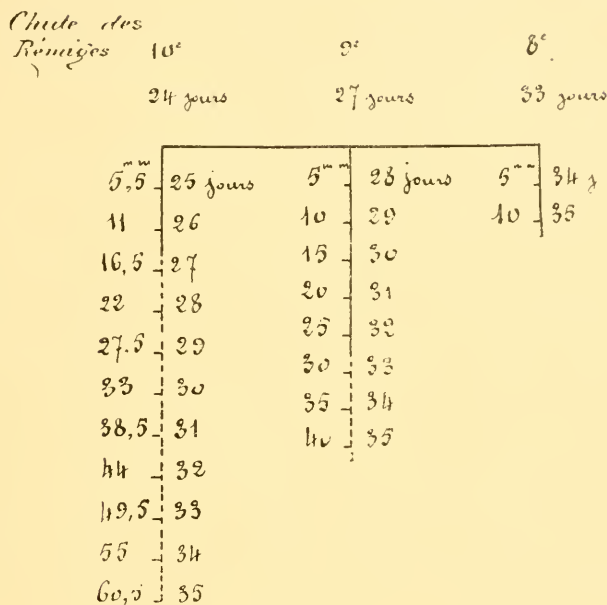 Chute des
Rémiges 10e 9e 8e.
24 jours 27 jours 33 jours
5,5 mm 25 jours 5 mm 28 jours 5 mm 34 j
11 26 10 29 10 35
16,5 27 15 30
22 28 20 31
27.5 29 25 32
33 30 30 33
38,5 31 35 34
44 32 40 35
49,5 33
55 34
60,5 35